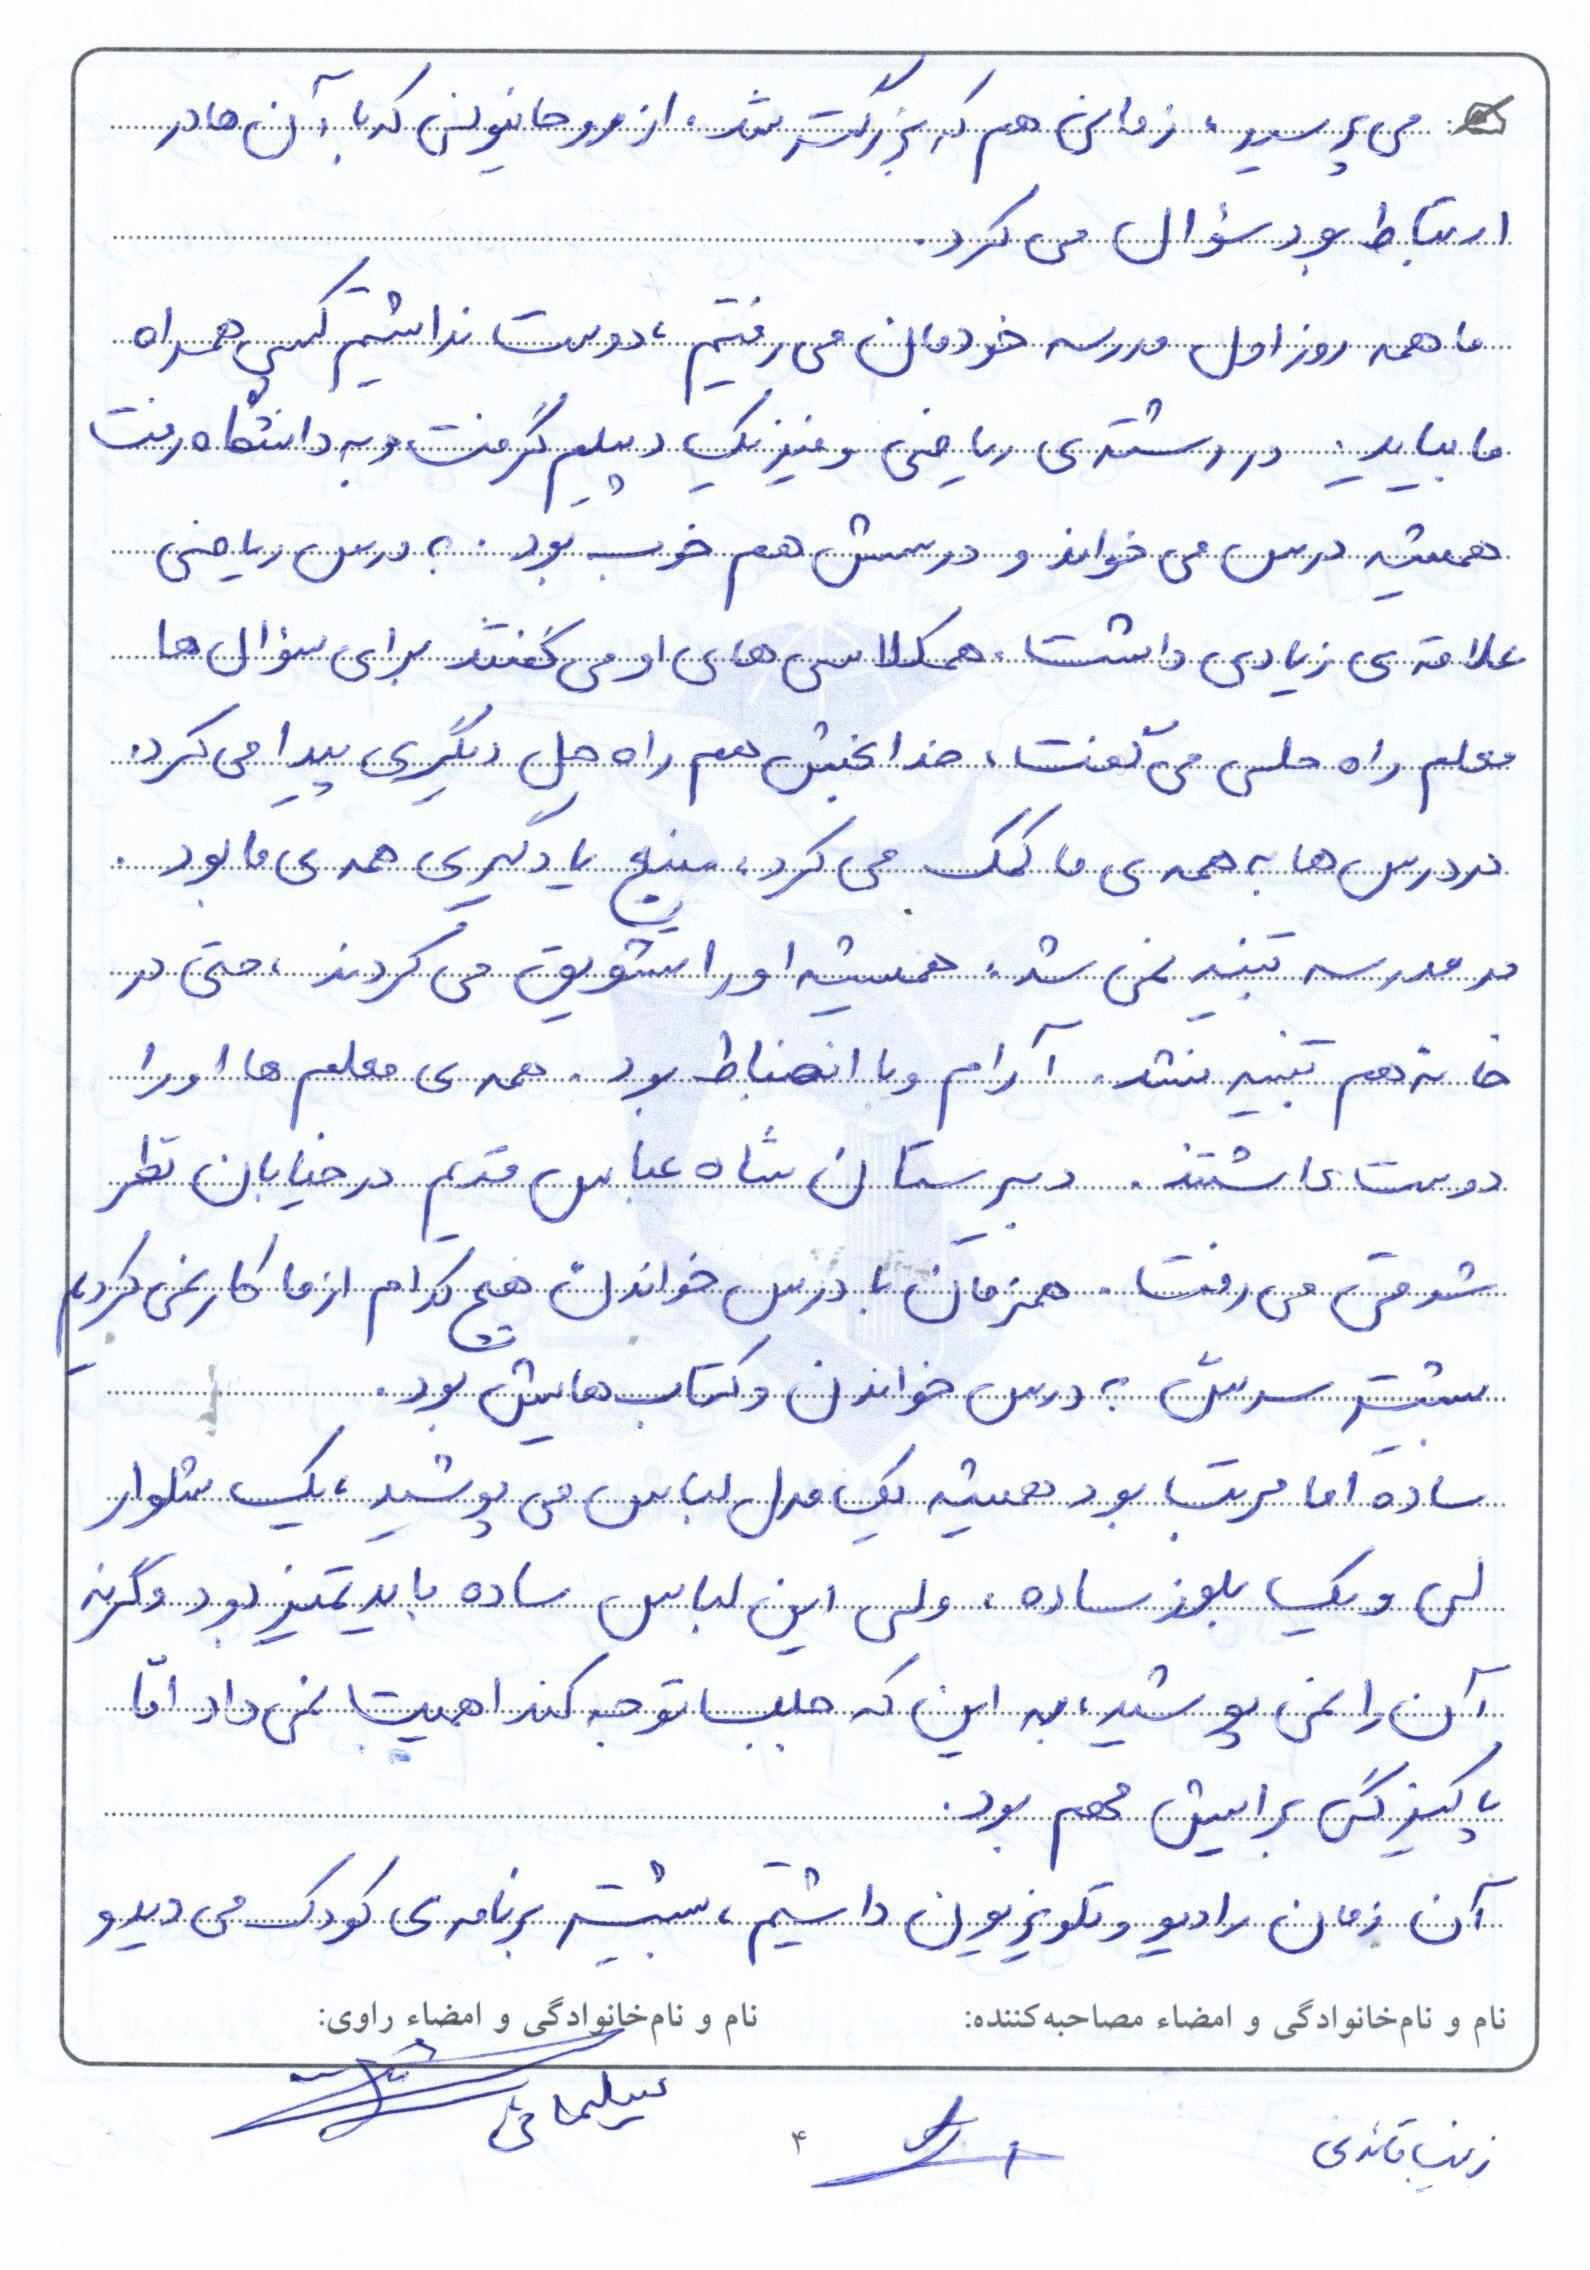 می پرسید، زمانی هم که بزرگتر شد، از روحانیونی که با آن ها در
ارتباط بود سؤال می کرد.
ما همه روز اول مدرسه خودمان می رفتیم، دوست نداشتیم کسی همراه
ما بیاید. در رشته ی ریاضی و فیزیک دیپلم گرفت و به دانشگاه رفت
همیشه درس می خواند و درسش هم خوب بود. به درس ریاضی
علاقه ی زیادی داشت. همکلاسی های او می گفتند برای سؤال ها
معلم راه حلی می گفت، خدابخش هم راه حل دیگری پیدا می کرد.
در درس ها به همه ی ما کمک می کرد، منبع یادگیری همه ی ما بود.
در مدرسه تنبیه نمی شد. همیشه او را تشویق می کردند، حتی در
خانه هم تنبیه نشد. آرام و با انضباط بود. همه ی معلم ها او را
دوست داشتند. دبیرستان شاه عباس قدیم در خیابان نظر
شرقی می رفت. همزمان با درس خواندن هیچ کدام از ما کار نمی کردیم
بیشتر سرش به درس خواندن و کتاب هایش بود.
ساده اما مرتب بود همیشه یک مدل لباس می پوشید، یک شلوار
لی و یک بلوز ساده، ولی این لباس ساده باید تمیز بود وگرنه
آن را نمی پوشید، به این که جلب توجه کند اهمیت نمی داد امّا
پاکیزگی برایش مهم بود.
آن زمان رادیو و تلویزیون داشتیم، بیشتر برنامه ی کودک می دید و
نام و نام‌خانوادگی و امضاء مصاحبه‌کننده: نام و نام‌خانوادگی و امضاء راوی:
زینب قائدی
۴